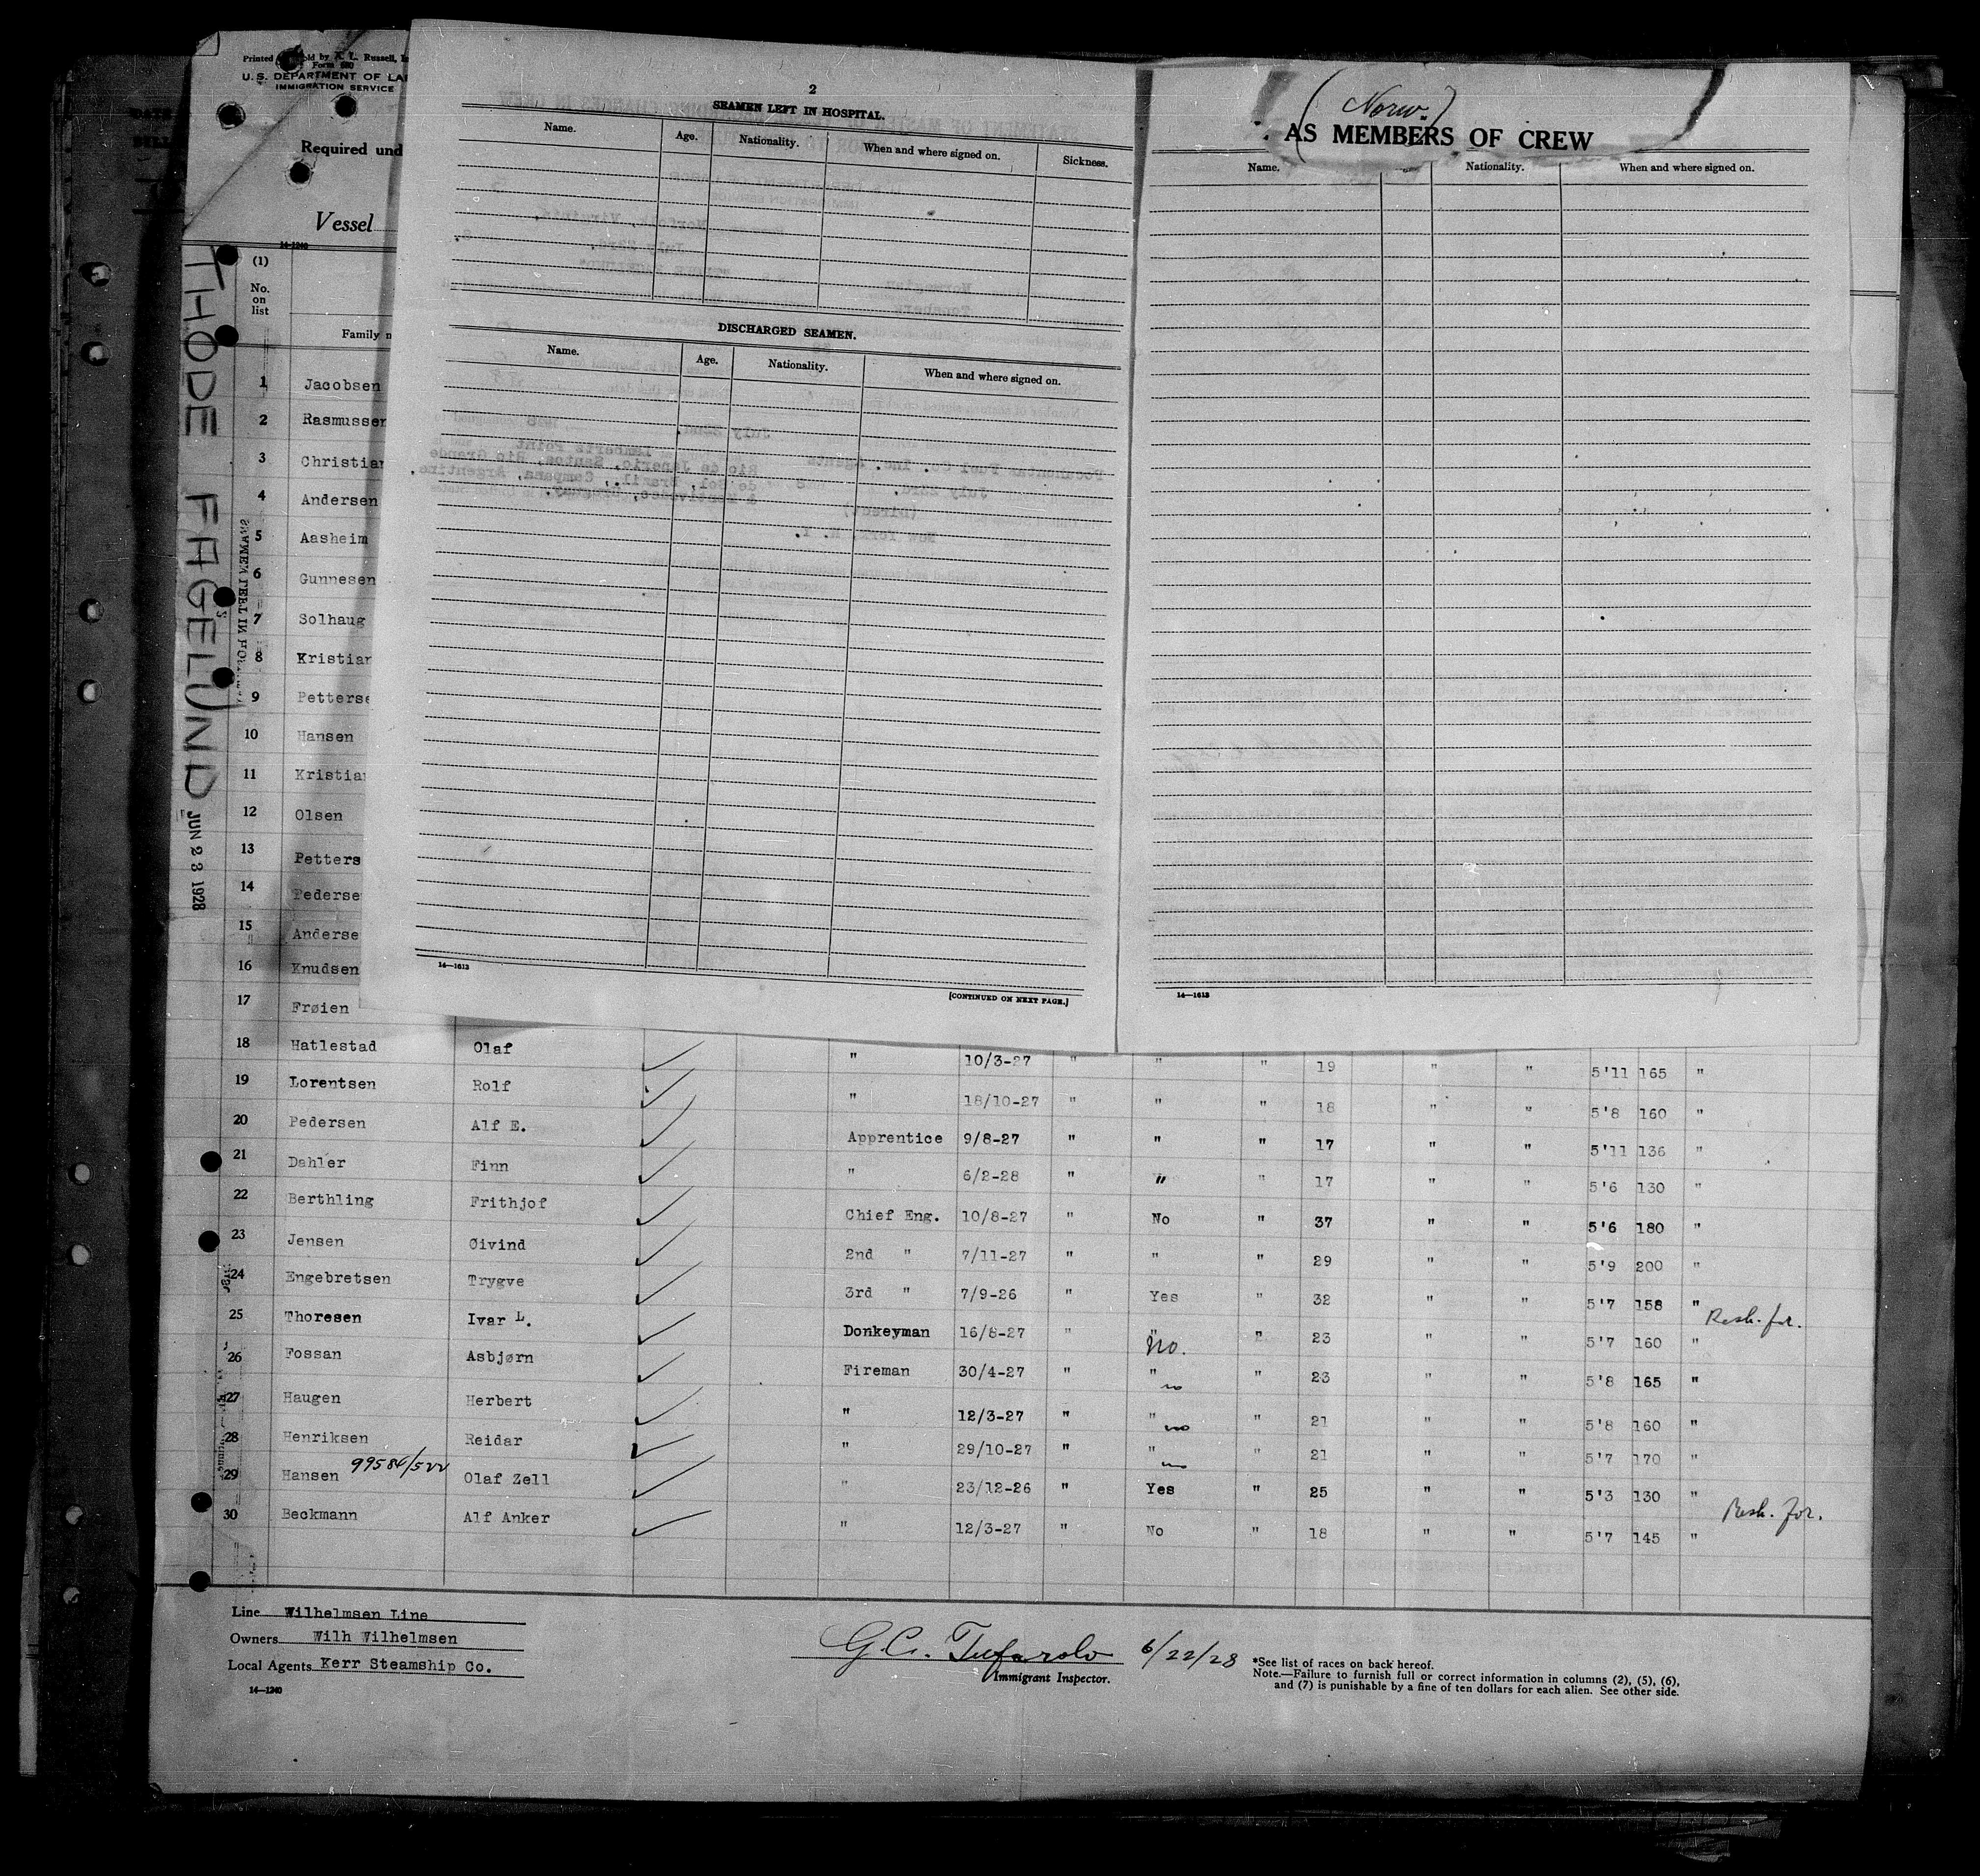 Form 680
U.S. DEPARTMENT OF LA
IMMIGRATION SERVICE
Required und
Vessel
14-1240
(1)
No.
on
list
Family n
THODE FAGELUND JUN 23 1928
SEAMEN LEFT IN HO
2
SEAMEN LEFT IN HOSPITAL.
Name. Age. Nationality. When and where signed on. Sickness.
DISCHARGED SEAMEN.
Name. Age. Nationality. When and where signed on.
14—1613
[CONTINUED ON NEXT PAGE.]
(Norw.)
AS MEMBERS OF CREW
Name. Nationality. When and where signed on.
14—1613
1 Jacobsen
2 Rasmussen
3 Christian
4 Andersen
5 Aasheim
6 Gunnesen
7 Solhaug
8 Kristian
9 Petterse
10 Hansen
11 Kristian
12 Olsen
13 Petters
14 Pederse
15 Anderse
16 Knudsen
17 Frøien
18 Hatlestad Olaf " 10/3-27 " " " 19 " " 5'11 165 "
19 Lorentsen Rolf " 18/10-27 " " " 18 " " 5'8 160 "
20 Pedersen Alf E. Apprentice 9/8-27 " " " 17 " " 5'11 136 "
21 Dahler Finn " 6/2-28 " " " 17 " " 5'6 130 "
22 Berthling Frithjof Chief Eng. 10/8-27 " No " 37 " " 5'6 180 "
23 Jensen Øivind 2nd " 7/11-27 " " " 29 " " 5'9 200 "
24 Engebretsen Trygve 3rd " 7/9-26 " Yes " 32 " " 5'7 158 " Resh. for.
25 Thoresen Ivar L. Donkeyman 16/8-27 " " No. " 23 " " 5'7 160 "
26 Fossan Asbjørn Fireman 30/4-27 " " no " 23 " " 5'8 165 "
27 Haugen Herbert " 12/3-27 " " no " 21 " " 5'8 160 "
28 Henriksen Reidar " 29/10-27 " " no " 21 " " 5'7 170 "
29 Hansen 99584/522 Olaf Zell " 23/12-26 " Yes " 25 " " 5'3 130 " Resh. for.
30 Beckmann Alf Anker " 12/3-27 " No " 18 " " 5'7 145 "
Line Wilhelmsen Line
Owners Wilh Wilhelmsen
Local Agents Kerr Steamship Co.
14—1240
G.C. Tufarolo 6/22/28
Immigrant Inspector.
*See list of races on back hereof.
Note.—Failure to furnish full or correct information in columns (2), (5), (6),
and (7) is punishable by a fine of ten dollars for each alien. See other side.